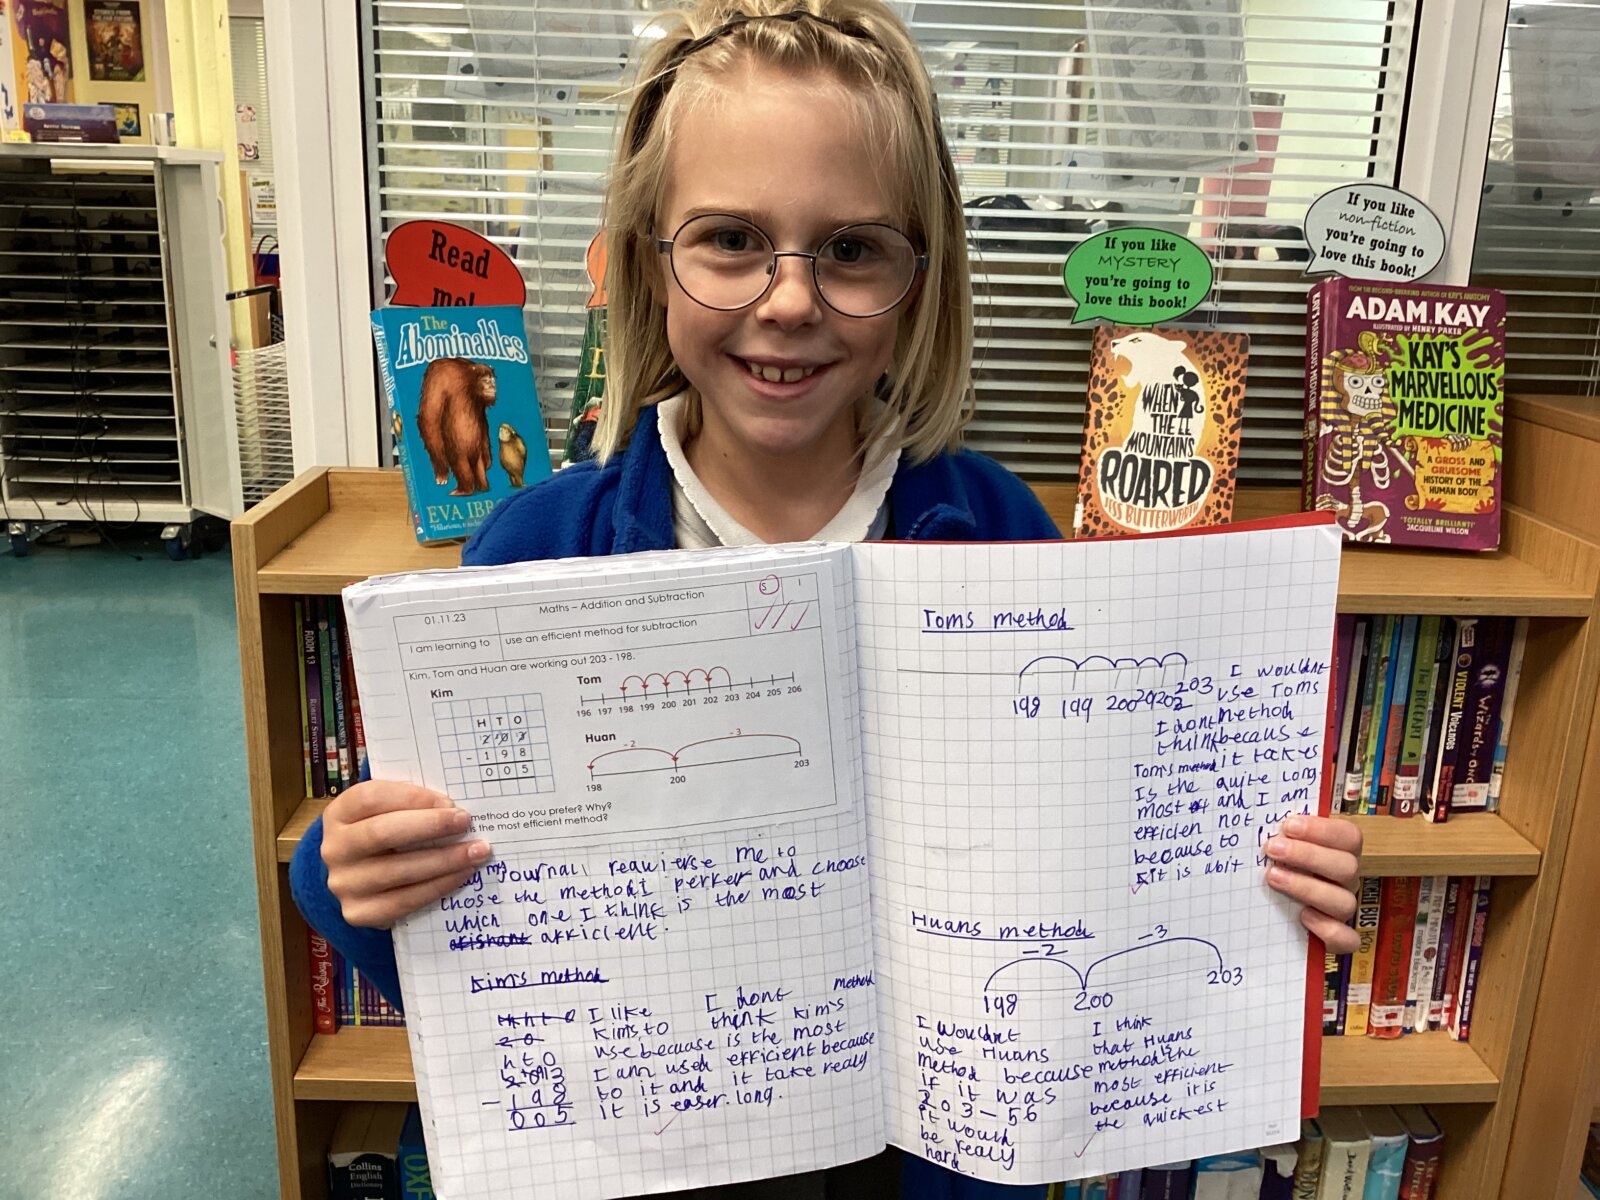 Read
me!
The
Abominables
EVA IBB
If you like
MYSTERY
you're going to
love this book!
WHEN
THE
MOUNTAINS
ROARED
JESS BUTTERWORTH
If you like
non-fiction
you're going to
love this book!
FROM THE RECORD-BREAKING AUTHOR OF KAY'S ANATOMY
ADAM KAY
ILLUSTRATED BY HENRY PAKER
KAY'S
MARVELLOUS
MEDICINE
A GROSS AND
GRUESOME
HISTORY OF THE
HUMAN BODY
'TOTALLY BRILLIANT!'
JACQUELINE WILSON
01.11.23
Maths – Addition and Subtraction
S 1
I am learning to
use an efficient method for subtraction
Kim, Tom and Huan are working out 203 - 198.
Kim
H T O
2 0 3
- 1 9 8
0 0 5
Tom
196 197 198 199 200 201 202 203 204 205 206
Huan
-2 -3
198 200 203
method do you prefer? Why?
is the most efficient method?
my Journal requierse me to
chose the method I perfer and choose
which one I think is the most
afficient.
Kim's method
h t o
2 0 3
- 1 9 8
0 0 5
I like
Kims to
use because
I am used
to it and
it is easer.
I dont
think Kim's method
is the most
efficient because
it take realy
long.
Toms method
198 199 200 201 202 203
I wouldnt
use Toms
method
because
it takes
quite long
and I am
not used
to
I dont
think
Tom's method
Is the
most
efficien
because
it is abit
Huans method
-2 -3
198 200 203
I wouldnt
use Huans
method because
if it was
203 - 56
it would
be realy
hard.
I think
that Huans
method is the
most efficient
because it is
the quickest
ROOM 13
ROBERT SWINDELLS
VIOLENT VOLCANOES
The Railway Children
Collins
English
Dictionary